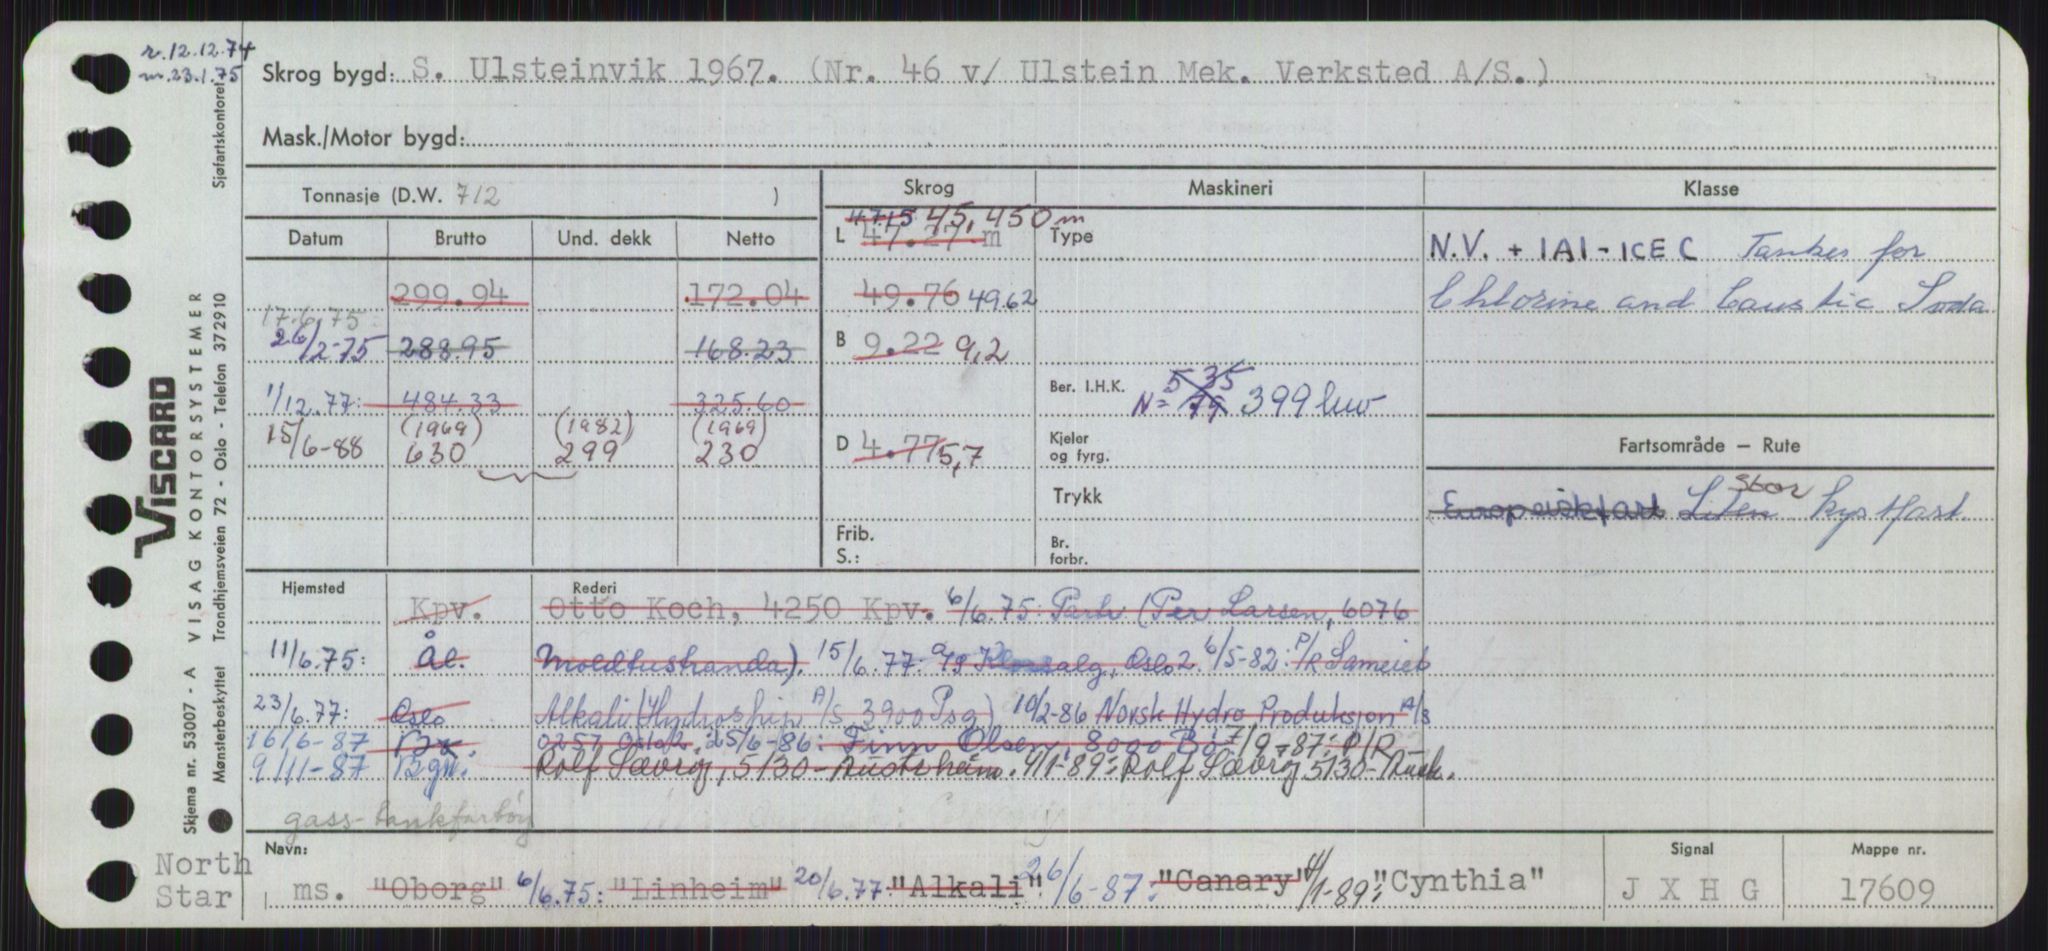 r. 12.12.74
m. 23.1.75
Skrog bygd: S. Ulsteinvik 1967. (Nr. 46 v/ Ulstein Mek. Verksted A/S.)
Mask./Motor bygd:
Tonnasje (D.W. 712 )
Skrog Maskineri Klasse
Datum Brutto Und. dekk Netto
L 47.15 45,450 m
47.27 m
Type
N.V. + 1A1 - ICE C Tankes for
Chlorine and Caustic Soda
299.94 172.04 49.76 49.62
17.6.75:
26/2-75 288.95 168.23
B 9.22 9,2
Ber. I.H.K. 5 35
N= 79 399 hw
1/12.77: 484.33 325.60
(1969) (1982) (1969)
15/6-88 630 299 230
D 4.77 5,7
Kjeler og fyrg.
Fartsområde — Rute
Trykk
Stor
Europeiskfart Liten kystfart
Frib. S.:
Br. forbr.
Hjemsted Rederi
Kpv. Otto Koch, 4250 Kpv. 6/6.75: Partr (Per Larsen, 6076
11/6.75: Ål. Moldtustranda). 15/6.77: A/S Klorsalg, Oslo 2. 6/5-82: P/R Sameiet
23/6.77: Oslo Alkali (Hydroship A/S 3900 Psg) 10/2-86 Norsk Hydro Produksjon A/S
16/6-87 Bø. 0257 Oslo 2, 25/6-86: Finn Olsen, 8000 Bø 7/9-87: P/R
9/11-87 Bgn. Rolf Sævrøy, 5130 - Austrheim. 4/1-89: Rolf Sævrøy 5130 - Austr.
gass-tankfartøy
Navn: Signal Mappe nr.
North
Star
ms. "Oborg" 6/6.75: "Linheim" 20/6.77: "Alkali" 26/6-87: "Canary" 4/1-89: "Cynthia" J X H G 17609
Skjema nr. 53007 - A VISAG KONTORSYSTEMER
VISCARD
Mønsterbeskyttet Trondhjemsveien 72 - Oslo - Telefon 372910 Sjøfartskontoret